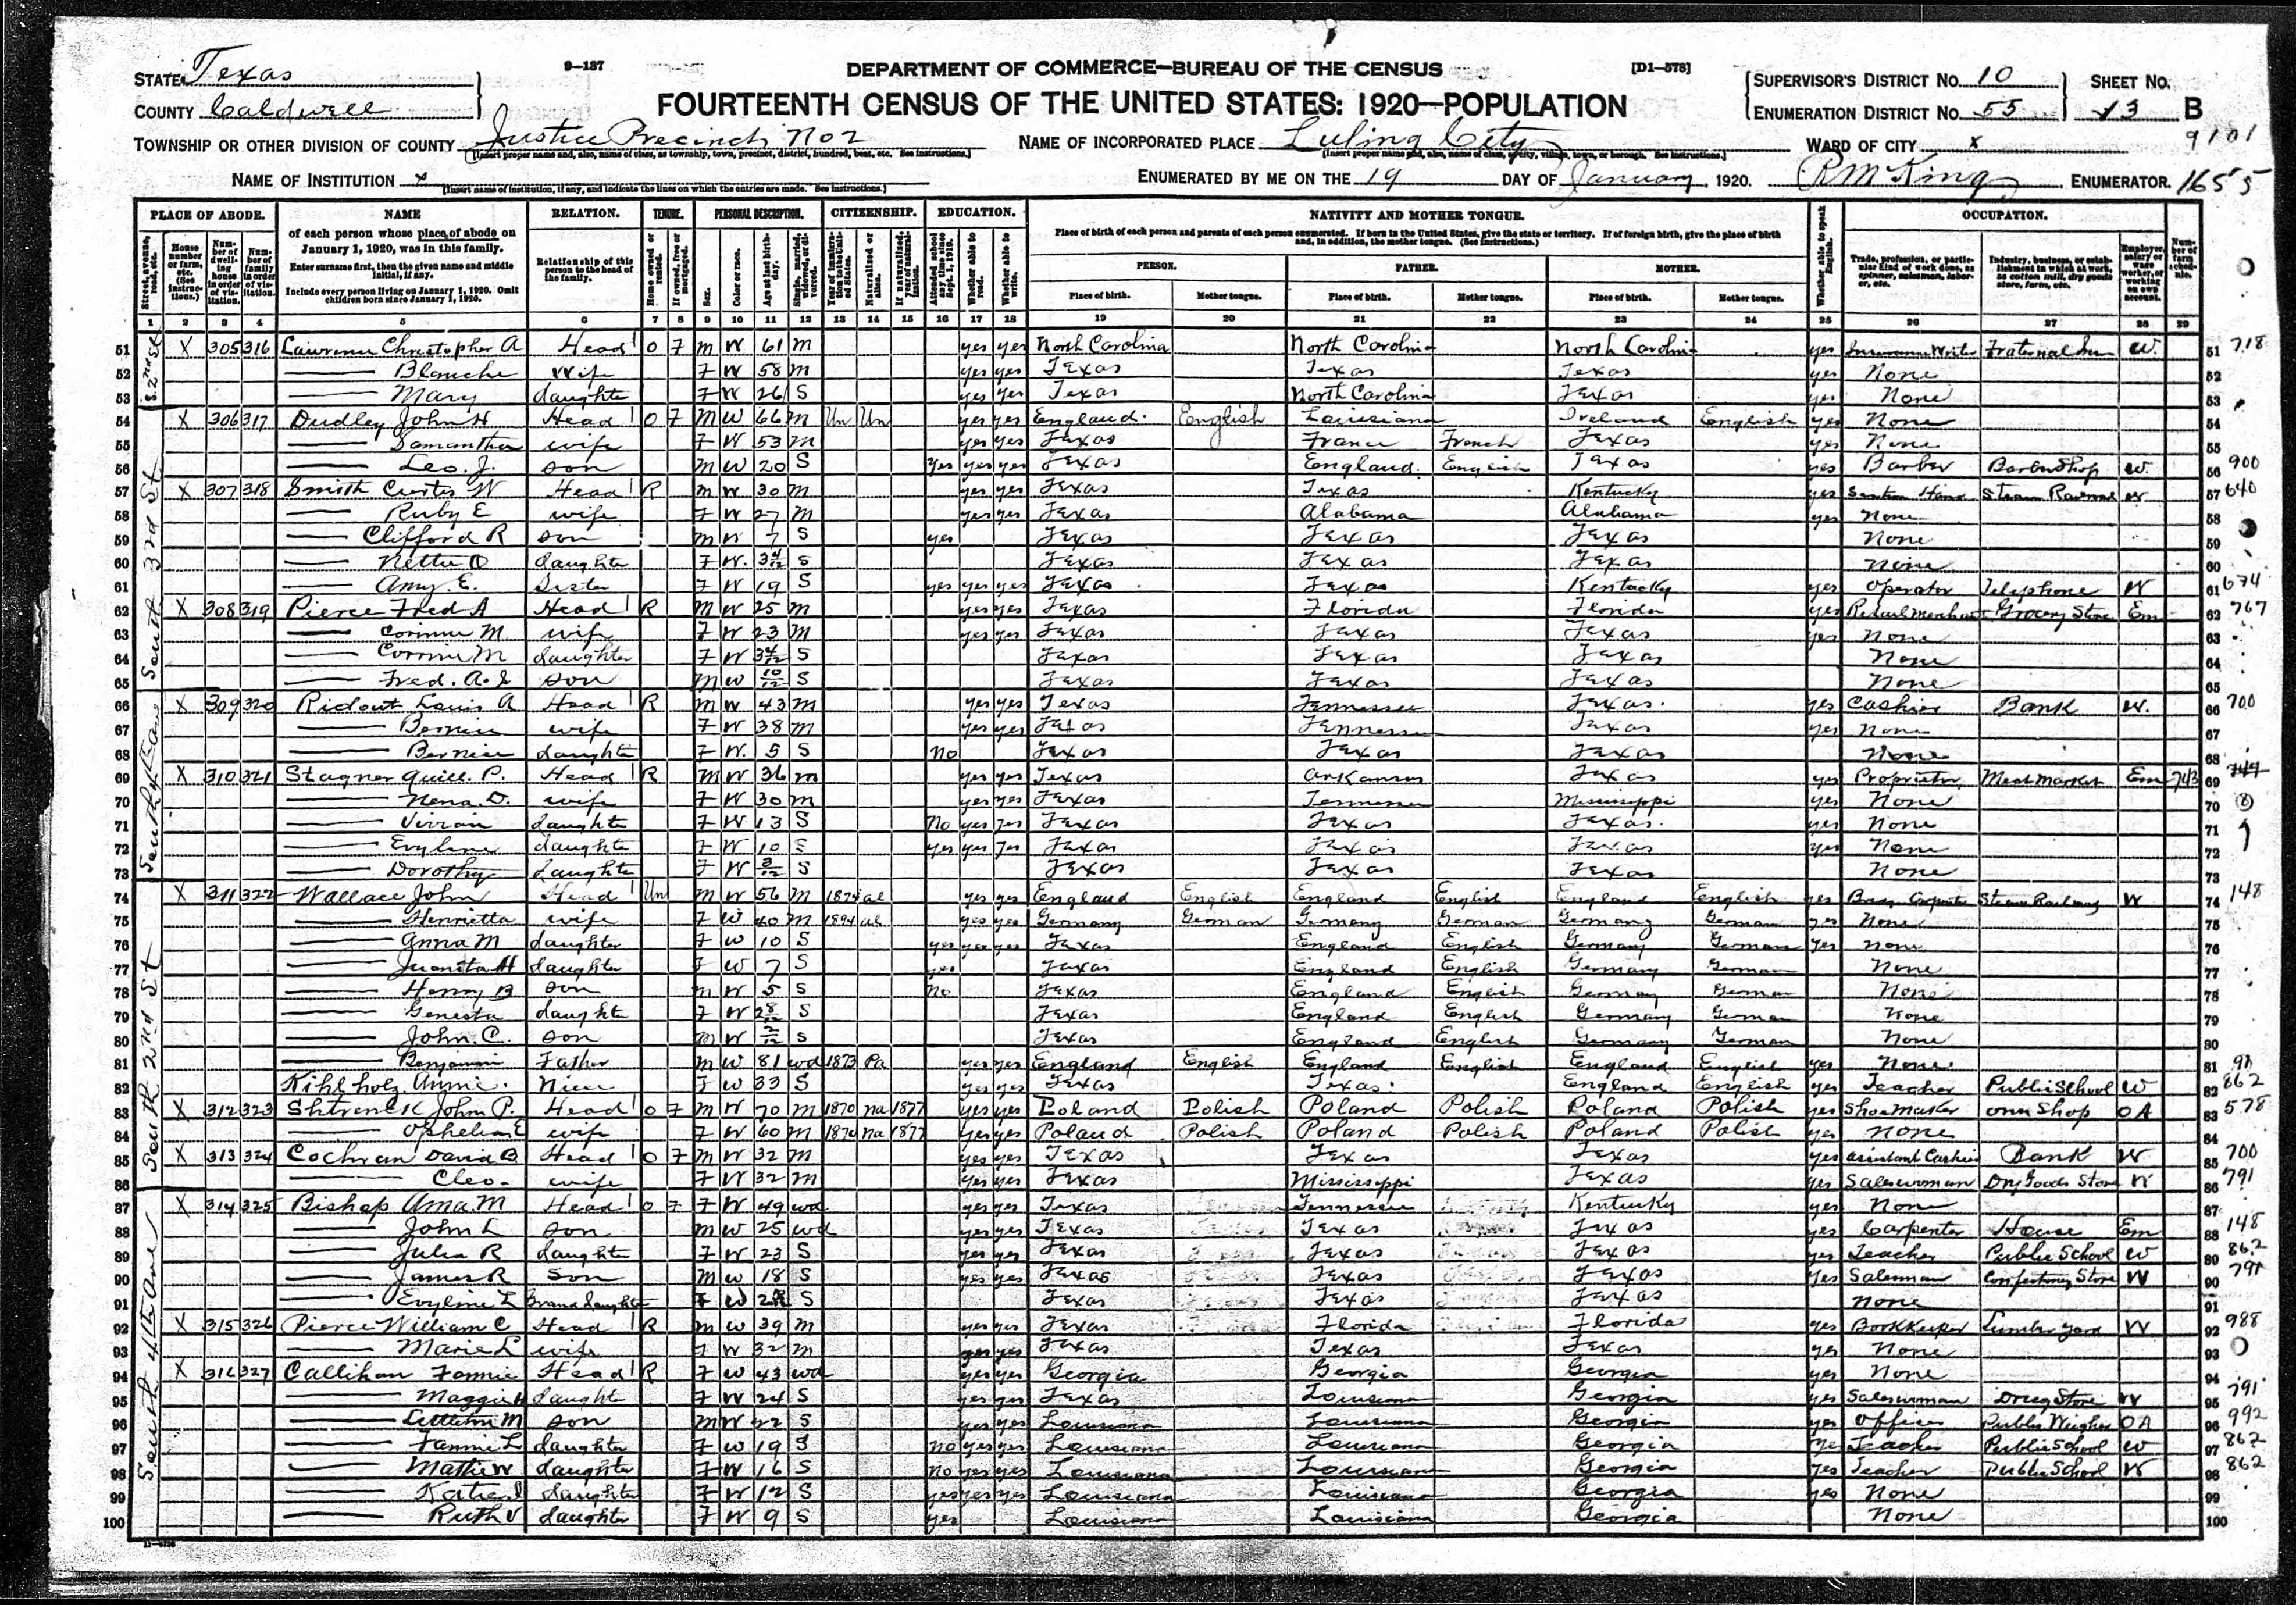 9—137
[D1—578]
STATE Texas
COUNTY Caldwell
DEPARTMENT OF COMMERCE—BUREAU OF THE CENSUS
FOURTEENTH CENSUS OF THE UNITED STATES: 1920—POPULATION
SUPERVISOR'S DISTRICT No. 10
ENUMERATION DISTRICT No. 55
SHEET No.
13 B
9101
TOWNSHIP OR OTHER DIVISION OF COUNTY Justice Precinct No 2
NAME OF INCORPORATED PLACE Luling City
WARD OF CITY x
NAME OF INSTITUTION x
ENUMERATED BY ME ON THE 19 DAY OF January, 1920. R M King ENUMERATOR. 1655
PLACE OF ABODE. NAME RELATION. TENURE. PERSONAL DESCRIPTION. CITIZENSHIP. EDUCATION. NATIVITY AND MOTHER TONGUE. OCCUPATION.
of each person whose place of abode on January 1, 1920, was in this family.
Enter surname first, then the given name and middle initial, if any.
Include every person living on January 1, 1920. Omit children born since January 1, 1920.
Relationship of this person to the head of the family.
Place of birth of each person and parents of each person enumerated. If born in the United States, give the state or territory. If of foreign birth, give the place of birth and, in addition, the mother tongue. (See instructions.)
PERSON. FATHER. MOTHER.
Place of birth. Mother tongue. Place of birth. Mother tongue. Place of birth. Mother tongue.
1 2 3 4 5 6 7 8 9 10 11 12 13 14 15 16 17 18 19 20 21 22 23 24 25 26 27 28 29
51 X 305 316 Lawrence Christopher A Head 1 O F M W 61 M yes yes North Carolina North Carolina North Carolina yes Insurance Writer Fraternal Ins W. 51 718
52 Blanche Wife F W 58 M yes yes Texas Texas Texas yes None 52
53 Mary daughter F W 26 S yes yes Texas North Carolina Texas yes None 53
54 X 306 317 Dudley John H Head 1 O F M W 66 M Un Un yes yes England. English Louisiana Ireland English yes None 54
55 Samantha wife F W 53 M yes yes Texas France French Texas yes None 55
56 Leo. J. son M W 20 S yes yes yes Texas England. English Texas yes Barber Barber Shop W. 56 900
57 X 307 318 Smith Curtis W Head 1 R M W 30 M yes yes Texas Texas Kentucky yes Section Hand Steam Railroad W 57 640
58 Ruby E wife F W 27 M yes yes Texas Alabama Alabama yes None 58
59 Clifford R son M W 7 S yes Texas Texas Texas None 59
60 Nettie O daughter F W. 3 4/12 S Texas Texas Texas None 60
61 Amy. E. Sister F W 19 S yes yes yes Texas Texas Kentucky yes Operator Telephone W 61 674
62 X 308 319 Pierce Fred A Head 1 R M W 25 M yes yes Texas Florida Florida yes Retail Merchant Grocery Store Em 62 767
63 Corinne M. wife F W 23 M yes yes Texas Texas Texas yes None 63
64 Corrine M daughter F W 3 4/12 S Texas Texas Texas None 64
65 Fred. A. J son M W 10/12 S Texas Texas Texas None 65
66 X 309 320 Ridout Louis A Head 1 R M W 43 M yes yes Texas Tennessee Texas. yes Cashier Bank W. 66 700
67 Bernice wife F W 38 M yes yes Texas Tennessee Texas yes None 67
68 Bernice daughter F W. 5 S No Texas Texas Texas None 68
69 X 310 321 Stagner Quill. P. Head 1 R M W 36 M yes yes Texas Arkansas Texas yes Proprietor Meat Market Em 743 69 747
70 Nena. D. wife F W 30 M yes yes Texas Tennessee Mississippi yes None 70
71 Vivian daughter F W 13 S No yes yes Texas Texas Texas. yes None 71
72 Evyline daughter F W 10 S yes yes yes Texas Texas Texas yes None 72
73 Dorothy daughter F W 3/12 S Texas Texas Texas None 73
74 X 311 322 Wallace John Head 1 Un M W 56 M 1874 al yes yes England English England English England English yes Bridge Carpenter Steam Railway W 74 148
75 Henrietta wife F W 40 M 1894 al yes yes Germany German Germany German Germany German yes None 75
76 Anna M daughter F W 10 S yes yes yes Texas England English Germany German yes None 76
77 Juanita H daughter F W 7 S yes Texas England English Germany German None 77
78 Henry B son M W 5 S No Texas England English Germany German None 78
79 Genesta daughter F W 2 8/12 S Texas England English Germany German None 79
80 John. C. son M W 2/12 S Texas England English Germany German None 80
81 Benjamin Father M W 81 wd 1873 Pa yes yes England English England English England English yes None. 81
82 Kihlholz Annie. Niece F W 33 S yes yes Texas Texas. England English yes Teacher Public School W 82 862
83 X 312 323 Shtrenck John P. Head 1 O F M W 70 M 1870 na 1877 yes yes Poland Polish Poland Polish Poland Polish yes Shoe Maker own Shop OA 83 578
84 Ophelia E wife F W 60 M 1870 Na 1877 yes yes Poland Polish Poland Polish Poland Polish yes None 84
85 X 313 324 Cochran David B Head 1 O F M W 32 M yes yes Texas Texas Texas yes assistant Cashier Bank W 85 700
86 Cleo. wife F W 32 M yes yes Texas Mississippi Texas yes Saleswoman Dry Goods Store W 86 791
87 X 314 325 Bishop Ama. M Head 1 O F F W 49 wd yes yes Texas Tennessee Kentucky yes None 87
88 John L son M W 25 wd yes yes Texas Texas Texas yes Carpenter House Em 88 148
89 Julia R daughter F W 23 S yes yes Texas Texas Texas yes Teacher Public School W 89 862
90 James R Son M W 18 S yes yes Texas Texas Texas yes Salesman Confectionery Store W 90 791
91 Evyline L Grand daughter F W S Texas Texas Texas None 91
92 X 315 326 Pierce William C Head 1 R M W 39 M yes yes Texas Florida Florida yes Bookkeeper Lumber yard W 92 988
93 Marie L wife F W 32 M yes yes Texas Texas Texas yes None 93
94 X 316 327 Callihan Fannie Head 1 R F W 43 wd yes yes Georgia Georgia Georgia yes None 94
95 Maggie H daughter F W 24 S yes yes Texas Louisiana Georgia yes Saleswoman Drug Store W 95 791
96 Littleton M son M W 22 S yes yes Louisiana Louisiana Georgia yes Officer Public Weigher OA 96 992
97 Fannie L daughter F W 19 S No yes yes Louisiana Louisiana Georgia yes Teacher Public School W 97 862
98 Mathie W daughter F W 16 S No yes yes Louisiana Louisiana Georgia yes Teacher Public School W 98 862
99 Katie I daughter F W 12 S yes yes yes Louisiana Louisiana Georgia yes None 99
100 Ruth V daughter F W 9 S yes Louisiana Louisiana Georgia None 100
S. 2nd St
South 3rd St
South 2nd St
South 4th Ave